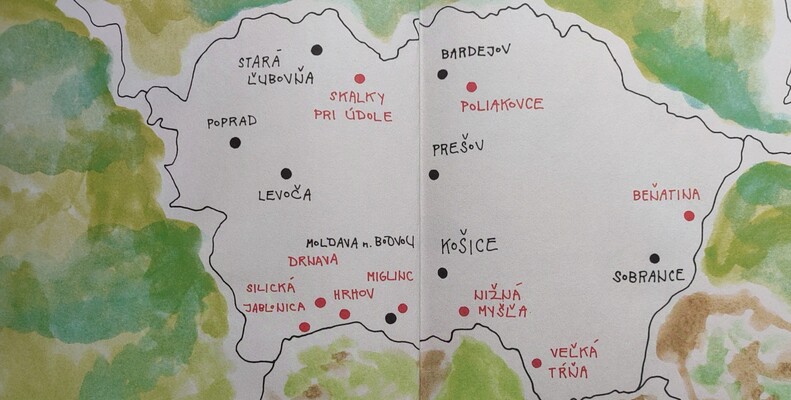 STARÁ
ĽUBOVŇA
BARDEJOV
SKALKY
PRI ÚDOLE
POLIAKOVCE
POPRAD
PREŠOV
LEVOČA
BEŇATINA
MOLDAVA n. BODVOU
KOŠICE
DRNAVA
SOBRANCE
MIGLINC
SILICKÁ
JABLONICA
HRHOV
NIŽNÁ
MYŠĽA
VEĽKÁ
TŔŇA